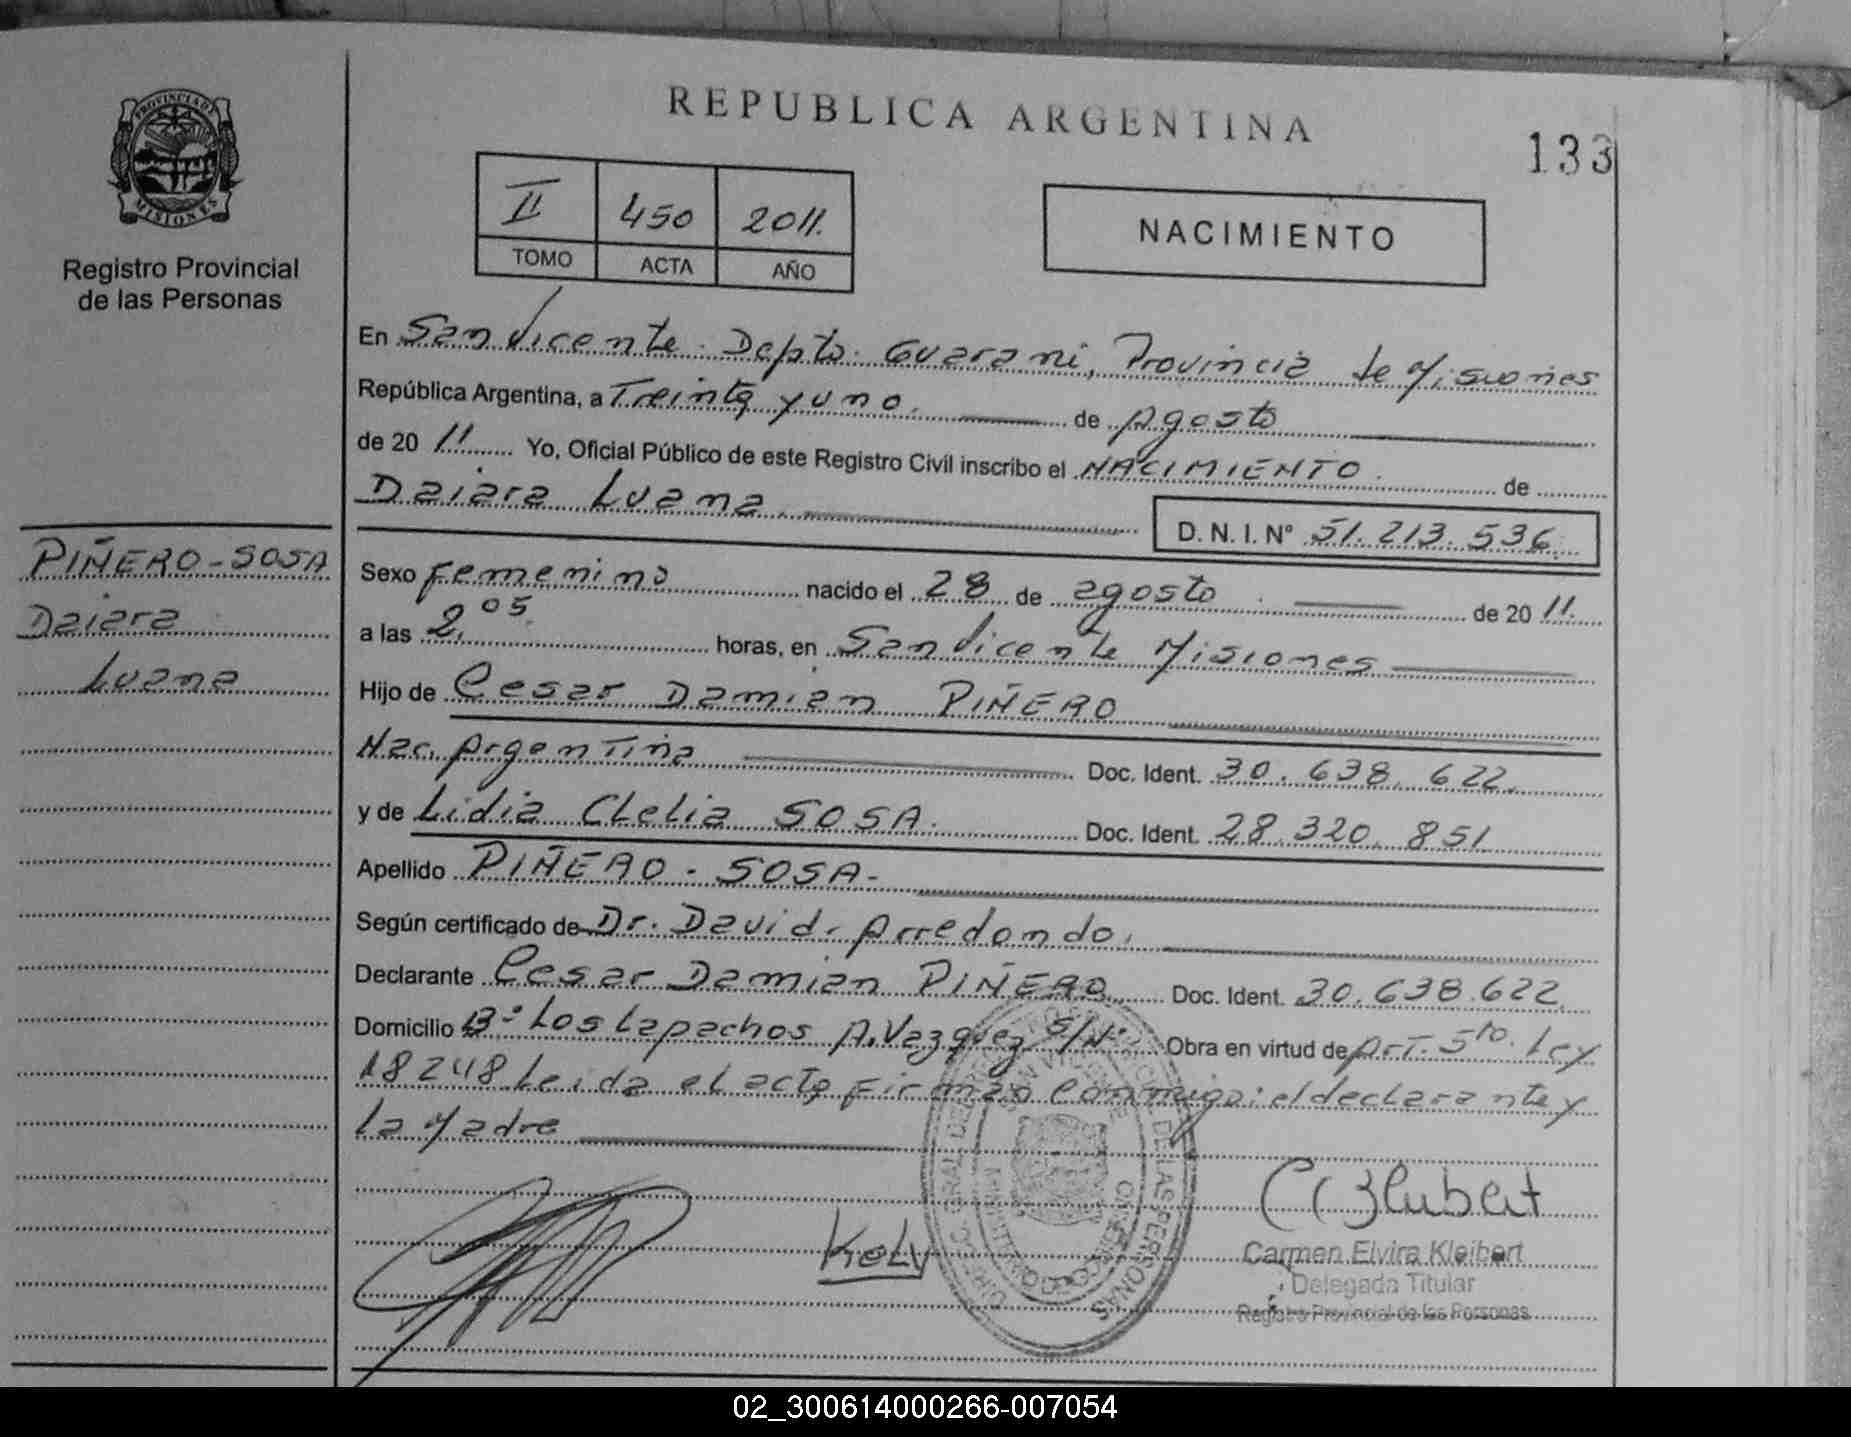 REPUBLICA ARGENTINA
133
PROVINCIA DE
MISIONES
Registro Provincial
de las Personas
II 450 2011.
TOMO ACTA AÑO
NACIMIENTO
En San Vicente. Depto. Guarani, Provincia de Misiones
República Argentina, a Treinta y uno. de Agosto
de 20 11 Yo, Oficial Público de este Registro Civil inscribo el NACIMIENTO. de
Daiara Luana
D. N. I. Nº 51.213.536.
PIÑERO-SOSA
Daiara
Luana
Sexo Femenino nacido el 28 de agosto de 20 11.
a las 2,05 horas, en San Vicente Misiones
Hijo de Cesar Damian PIÑERO
Nac. Argentina Doc. Ident. 30.638.622.
y de Lidia Clelia SOSA. Doc. Ident. 28.320.851
Apellido PIÑERO - SOSA-
Según certificado de Dr. David Arredondo.
Declarante Cesar Damian PIÑERO Doc. Ident. 30.638.622.
Domicilio Bº Los Lapachos A. Vazquez S/Nº Obra en virtud de Art. 5to. Ley
18248 Leida el acta firman conmigo: el declarante y
la Madre
Kely
Carmen Elvira Kleibert
Delegada Titular
Registro Provincial de las Personas
DE LAS PERSONAS
02_300614000266-007054